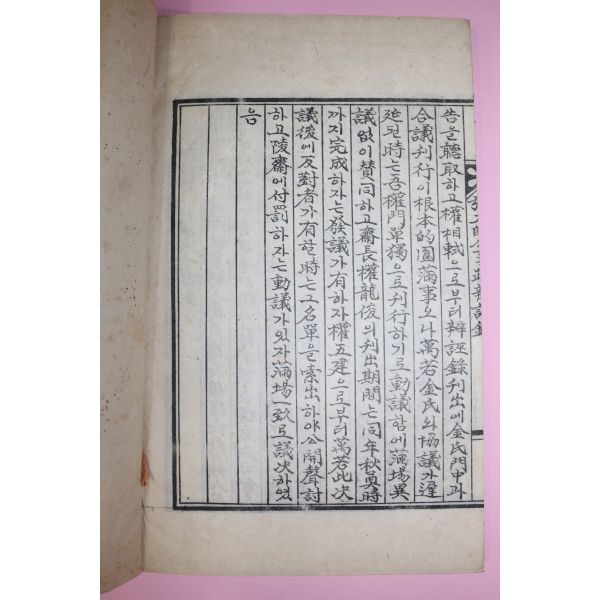 告을聽取하고權相軾으로부터辨誣錄刊出에金氏門中과
合議刊行이根本的圓滿事오나萬若金氏와協議가遲
延된時는吾權門單獨으로刊行하기로動議함에滿場異
議없이賛同하고齋長權龍後의刊出期間는同年秋奠時
까지完成하자는發議가有하자權五建으로부터萬若此決
議後에反對者가有할時는그名單을索出하야公開聲討
하고陵齋에付罰하자는動議가있자滿場一致로議决하였
음